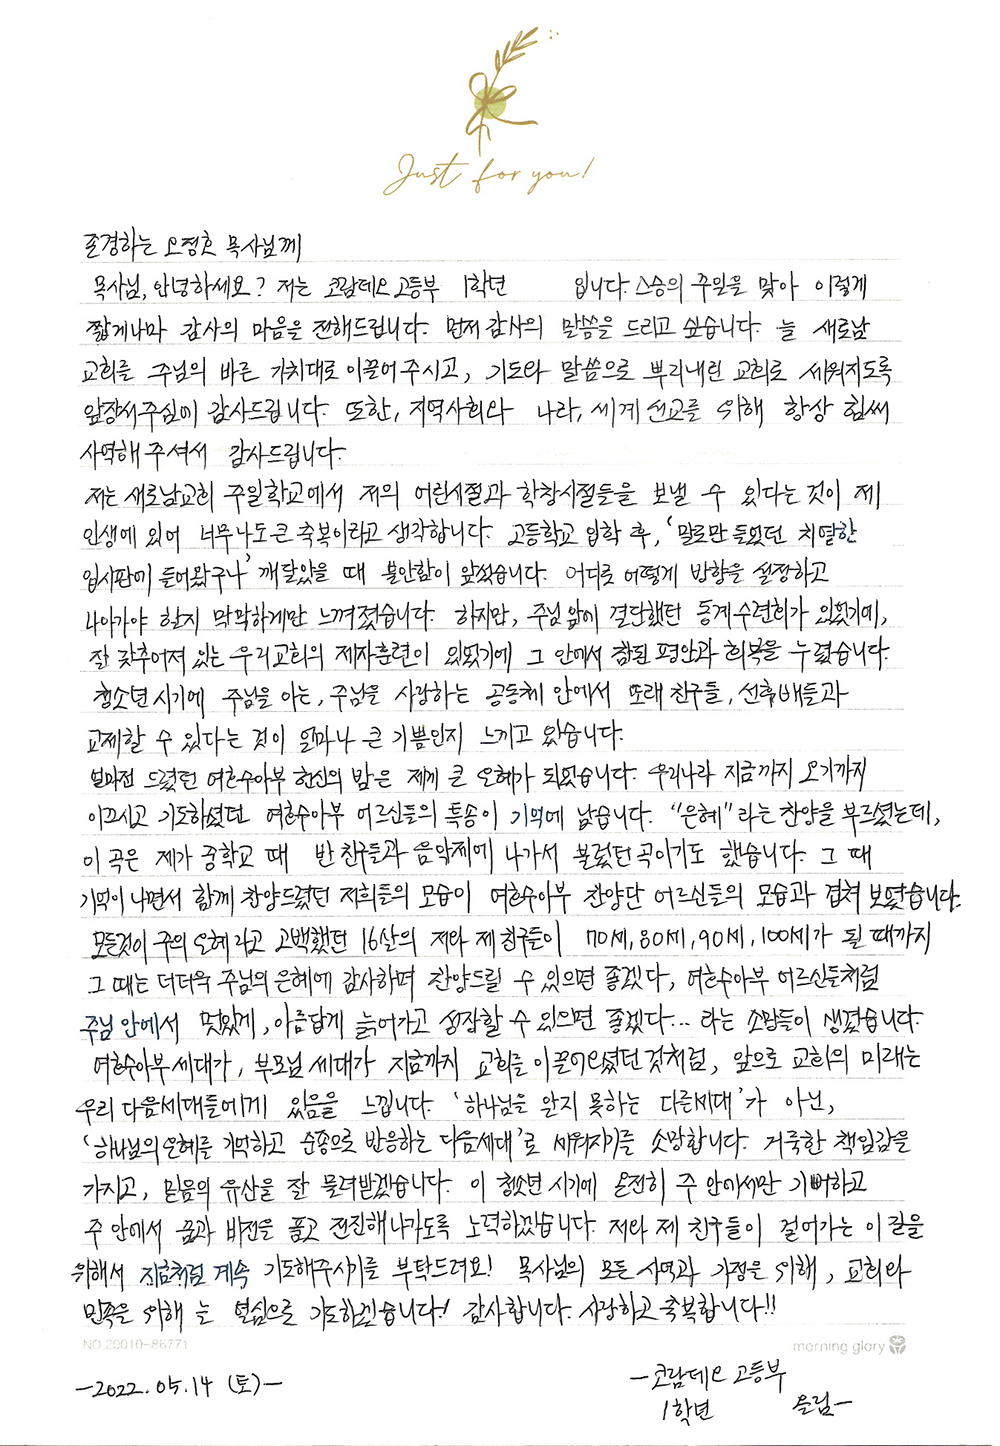 Just for you!
존경하는 오정호 목사님께
목사님, 안녕하세요? 저는 코람데오 고등부 1학년 입니다. 스승의 주일을 맞아 이렇게
짧게나마 감사의 마음을 전해드립니다. 먼저 감사의 말씀을 드리고 싶습니다. 늘 새로남
교회를 주님의 바른 가치대로 이끌어 주시고, 기도와 말씀으로 뿌리내린 교회로 세워지도록
앞장서주심에 감사드립니다. 또한, 지역사회와 나라, 세계 선교를 위해 항상 힘써
사역해 주셔서 감사드립니다.
저는 새로남교회 주일학교에서 저의 어린시절과 학창시절들을 보낼 수 있다는 것이 제
인생에 있어 너무나도 큰 축복이라고 생각합니다. 고등학교 입학 후, '말로만 들었던 치열한
입시판에 들어왔구나' 깨달았을 때 불안함이 앞섰습니다. 어디로 어떻게 방향을 설정하고
나아가야 할지 막막하게만 느껴졌습니다. 하지만, 주님 앞에 결단했던 동계수련회가 있었기에,
잘 갖추어져 있는 우리교회의 제자훈련이 있었기에 그 안에서 참된 평안과 회복을 누렸습니다.
청소년 시기에 주님을 아는, 주님을 사랑하는 공동체 안에서 또래 친구들, 선후배들과
교제할 수 있다는 것이 얼마나 큰 기쁨인지 느끼고 왔습니다.
얼마전 드렸던 여호수아부 헌신의 밤은 제게 큰 은혜가 되었습니다. 우리나라 지금까지 오기까지
이끄시고 기도하셨던 여호수아부 어르신들의 특송이 기억에 남습니다. "은혜"라는 찬양을 부르셨는데,
이 곡은 제가 중학교 때 반 친구들과 음악제에 나가서 불렀던 곡이기도 했습니다. 그 때
기억이 나면서 함께 찬양드렸던 저희들의 모습이 여호수아부 찬양단 어르신들의 모습과 겹쳐 보였습니다.
모든것이 주의 은혜라고 고백했던 16살의 저와 제 친구들이 70세, 80세, 90세, 100세가 될 때까지
그 때는 더더욱 주님의 은혜에 감사하며 찬양드릴 수 있으면 좋겠다, 여호수아부 어르신들처럼
주님 안에서 멋있게, 아름답게 늙어가고 성장할 수 있으면 좋겠다... 라는 소망들이 생겼습니다.
여호수아부 세대가, 부모님 세대가 지금까지 교회를 이끌어오셨던 것처럼, 앞으로 교회의 미래는
우리 다음세대들에게 있음을 느낍니다. '하나님을 알지 못하는 다른세대'가 아닌,
'하나님의 은혜를 기억하고 순종으로 반응하는 다음세대'로 세워지기를 소망합니다. 거룩한 책임감을
가지고, 믿음의 유산을 잘 물려받겠습니다. 이 청소년 시기에 온전히 주 안에서만 기뻐하고
주 안에서 꿈과 비전을 품고 전진해나가도록 노력하겠습니다. 저와 제 친구들이 걸어가는 이 길을
위해서 지금처럼 계속 기도해주시기를 부탁드려요! 목사님의 모든 사역과 가정을 위해, 교회와
민족을 위해 늘 열심으로 기도하겠습니다! 감사합니다. 사랑하고 축복합니다!!
NO.20010-86771 morning glory
-2022.05.14 (토)-
-코람데오 고등부
1학년 올림-